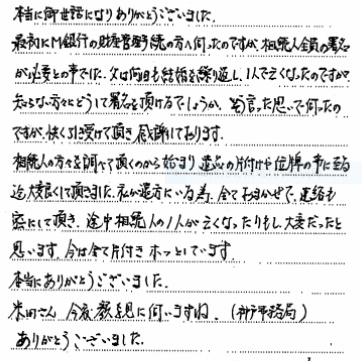 本当に御世話になりありがとうございました。
最初にM銀行の財産管理手続の方へ伺ったのですが、相続人全員の署名
が必要との事でした。父は何回も結婚を繰り返し、1人で亡くなったのですが、
知らない方々にどうして署名を頂けるでしょうか、
ですが、快く引き受けて頂き感謝しております。
相続人の方々を調べて頂くのから始まり遺品の片付けや位牌の事に至る
迄大変良くして頂きました。私が遠方にいる為、全ておまかせで、連絡も
密にして頂き、途中相続人の1人が亡くなったりもし、大変だったと
思います。今は全て片付きホッとしています。
本当にありがとうございました。
米田さん、今度顔を見に伺いますね。(神戸事務局)
ありがとうございました。